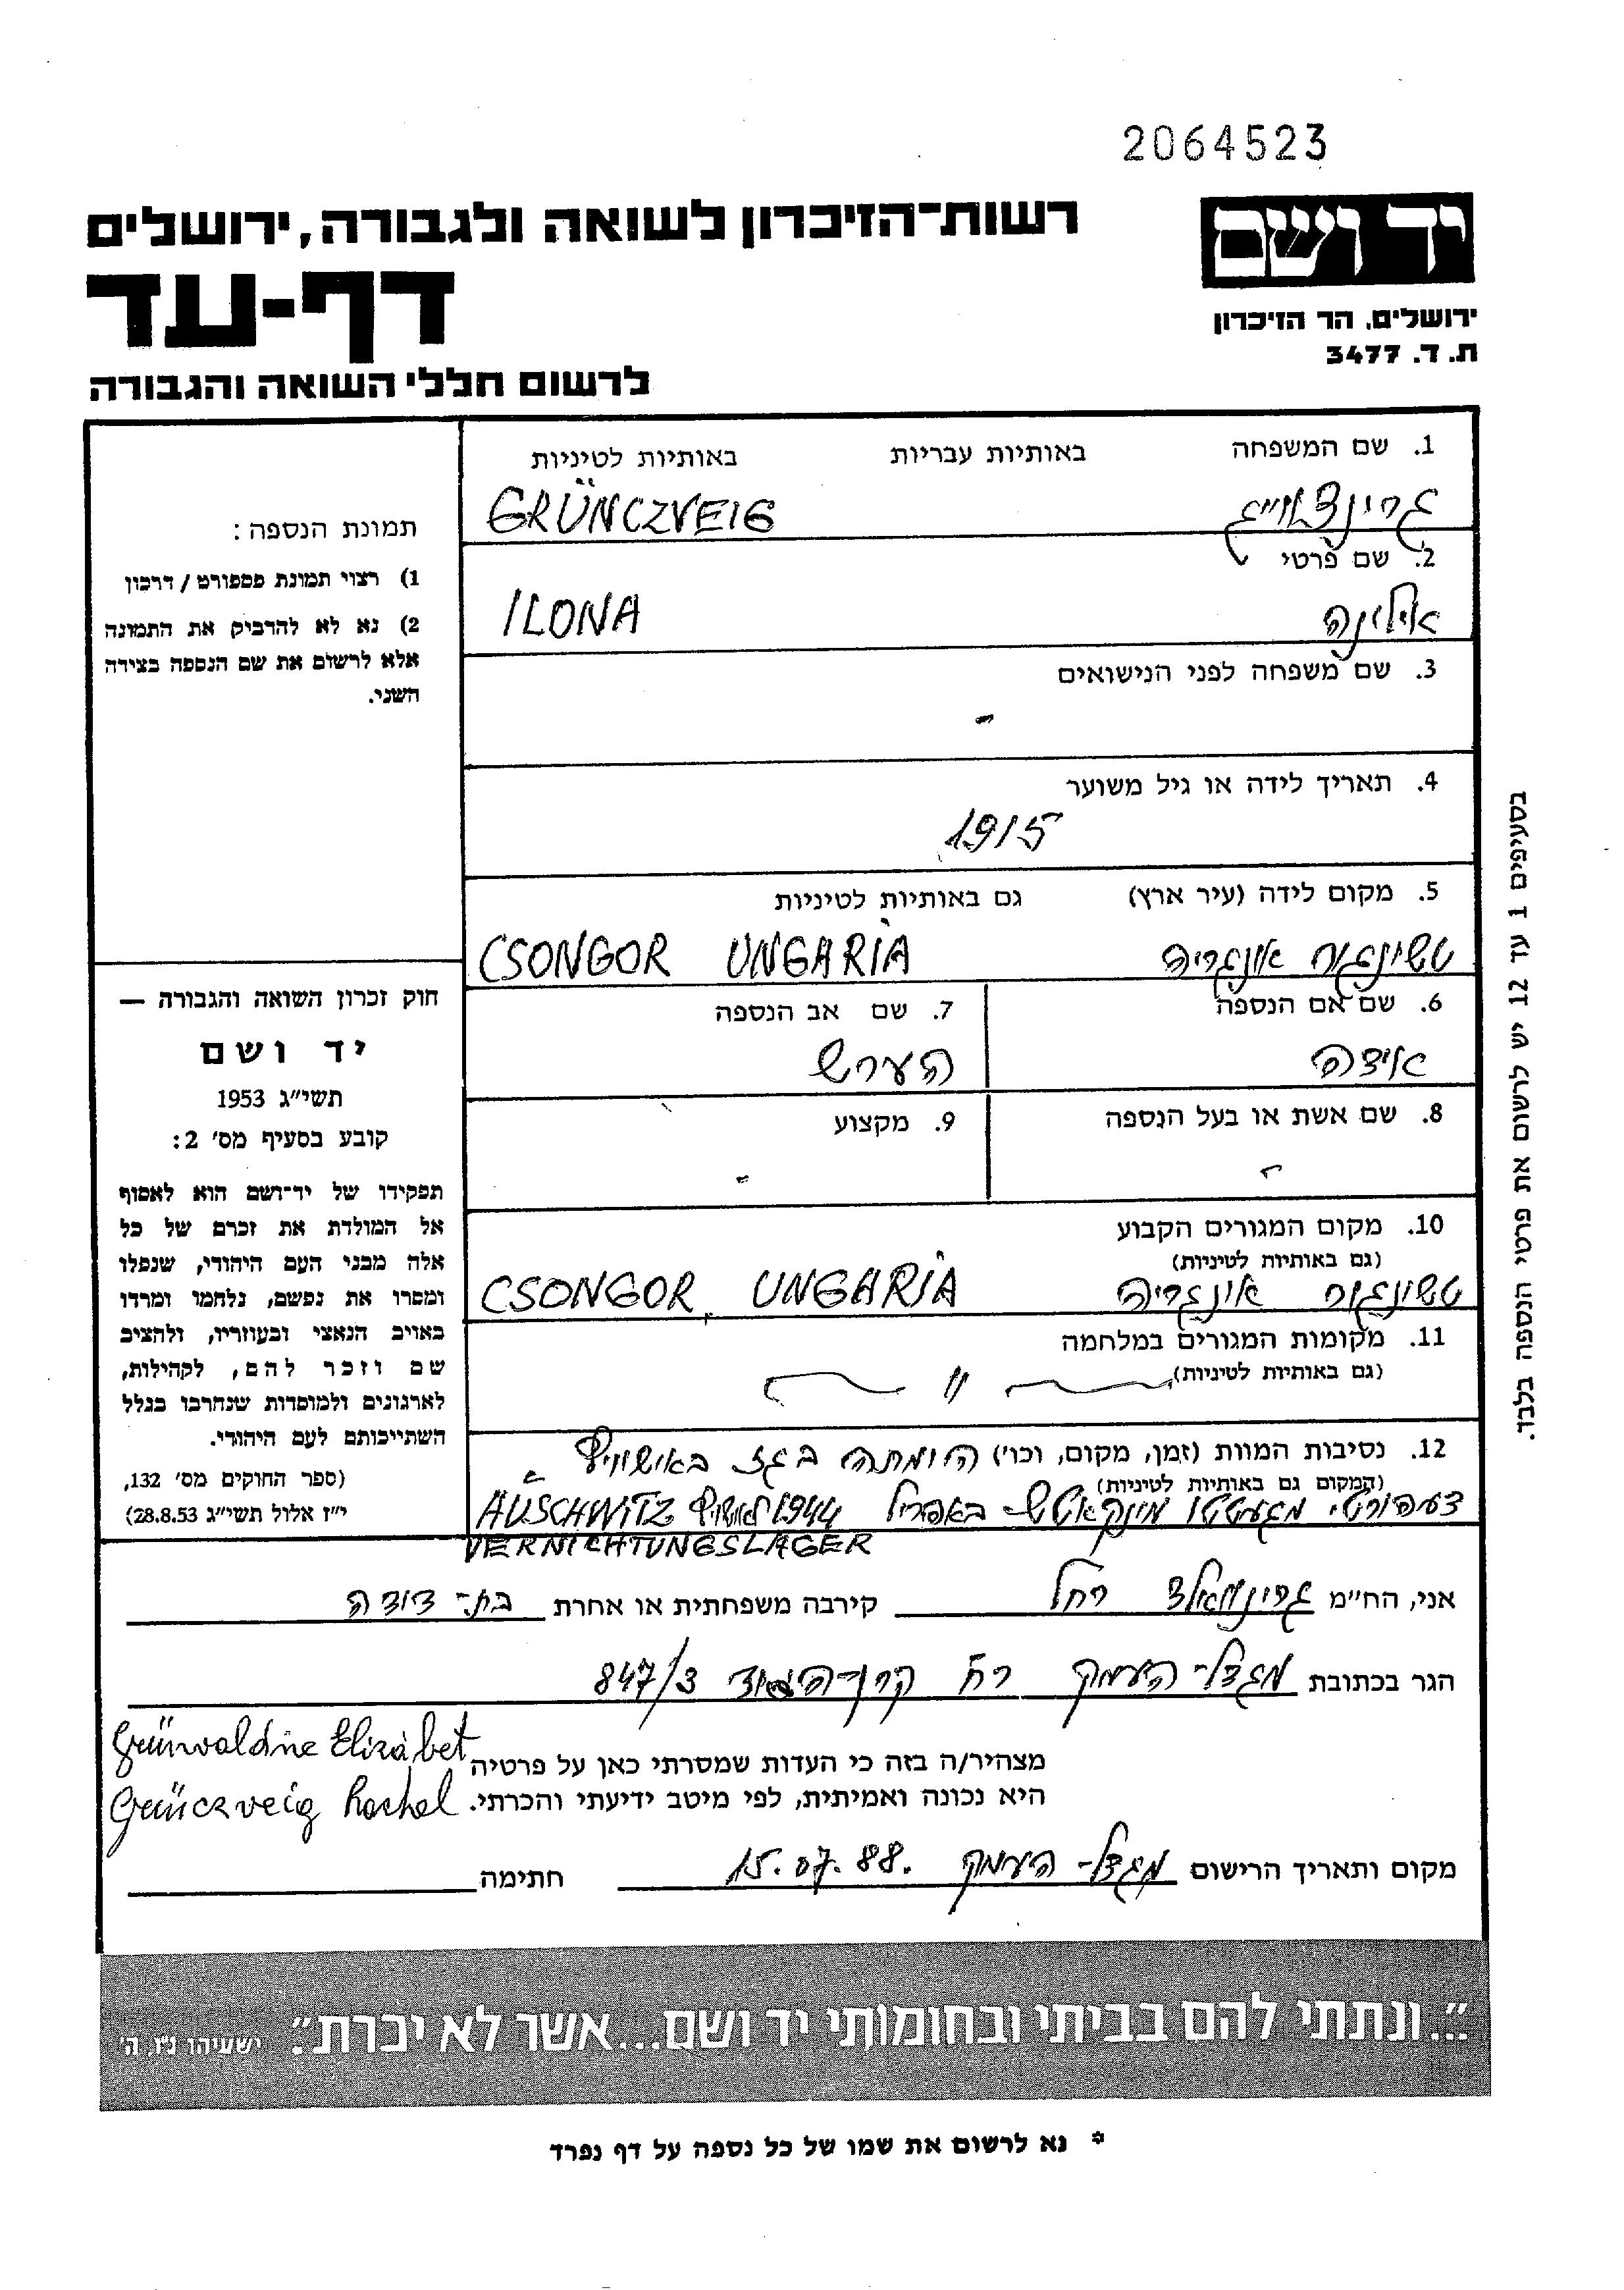 2064523
יד ושם
רשות־הזיכרון לשואה ולגבורה, ירושלים
דף-עד
ירושלים, הר הזיכרון
ת. ד. 3477
לרשום חללי השואה והגבורה
1. שם המשפחה באותיות עבריות באותיות לטיניות
גרינצווייג GRÜNCZVEIG
2. שם פרטי
אילינה ILONA
3. שם משפחה לפני הנישואים
-
4. תאריך לידה או גיל משוער
1915
5. מקום לידה (עיר ארץ) גם באותיות לטיניות
טשונגור אונגריה CSONGOR UNGARIA
6. שם אם הנספה 7. שם אב הנספה
הערש
8. שם אשת או בעל הנספה 9. מקצוע
- -
10. מקום המגורים הקבוע
(גם באותיות לטיניות)
טשונגור אונגריה CSONGOR, UNGARIA
11. מקומות המגורים במלחמה
(גם באותיות לטיניות)
— 〃 —
12. נסיבות המוות (זמן, מקום, וכו') הומתה בגז באישוויץ
(המקום גם באותיות לטיניות)
מגעטטו מונקאטש באפריל 1944 AUSCHWITZ
VERNICHTUNGSLAGER
תמונת הנספה:
1) רצוי תמונת פספורט / דרכון
2) נא לא להדביק את התמונה
אלא לרשום את שם הנספה בצידה
השני.
חוק זכרון השואה והגבורה —
יד ושם
תשי"ג 1953
קובע בסעיף מס' 2:
תפקידו של יד־ושם הוא לאסוף
אל המולדת את זכרם של כל
אלה מבני העם היהודי, שנפלו
ומסרו את נפשם, נלחמו ומרדו
באויב הנאצי ובעוזריו, ולהציב
שם וזכר להם, לקהילות,
לארגונים ולמוסדות שנחרבו בגלל
השתייכותם לעם היהודי.
(ספר החוקים מס' 132,
י"ז אלול תשי"ג 28.8.53)
בסעיפים 1 עד 12 יש לרשום את פרטי הנספה בלבד.
אני, הח"מ גרינוואלד רחל קירבה משפחתית או אחרת בת-דודה
הגר בכתובת מגדל-העמק רח קרן-היסוד 847/3
מצהיר/ה בזה כי העדות שמסרתי כאן על פרטיה
היא נכונה ואמיתית, לפי מיטב ידיעתי והכרתי.
Grünwaldne Elizábet
Grünczveig Rachel
מקום ותאריך הרישום מגדל-העמק 15.07.88. חתימה
"...ונתתי להם בביתי ובחומותי יד ושם...אשר לא יכרת." ישעיהו נ"ו, ה'
* נא לרשום את שמו של כל נספה על דף נפרד